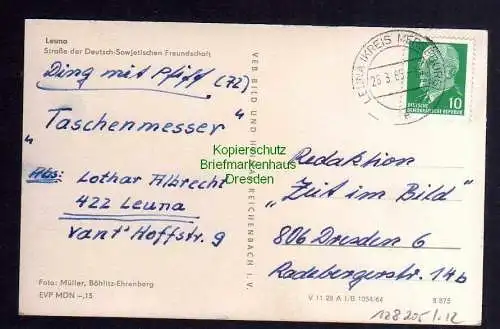 Leuna
Straße der Deutsch-Sowjetischen Freundschaft
Ding mit Pfiff (72)
"Taschenmesser"
Abs: Lothar Albrecht
422 Leuna
vant' Hoffstr. 9
Foto: Müller, Böhlitz-Ehrenberg
EVP MDN –,15
VEB BILD UND HEIMAT REICHENBACH I. V.
Kopierschutz
Briefmarkenhaus
Dresden
LEUNA (KREIS MERSEBURG)
10
DEUTSCHE
DEMOKRATISCHE REPUBLIK
Redaktion
"Zeit im Bild"
806 Dresden 6
Radebergerstr. 14b
V 11 28 A 1/B 1054/64
8 875
128205/.12